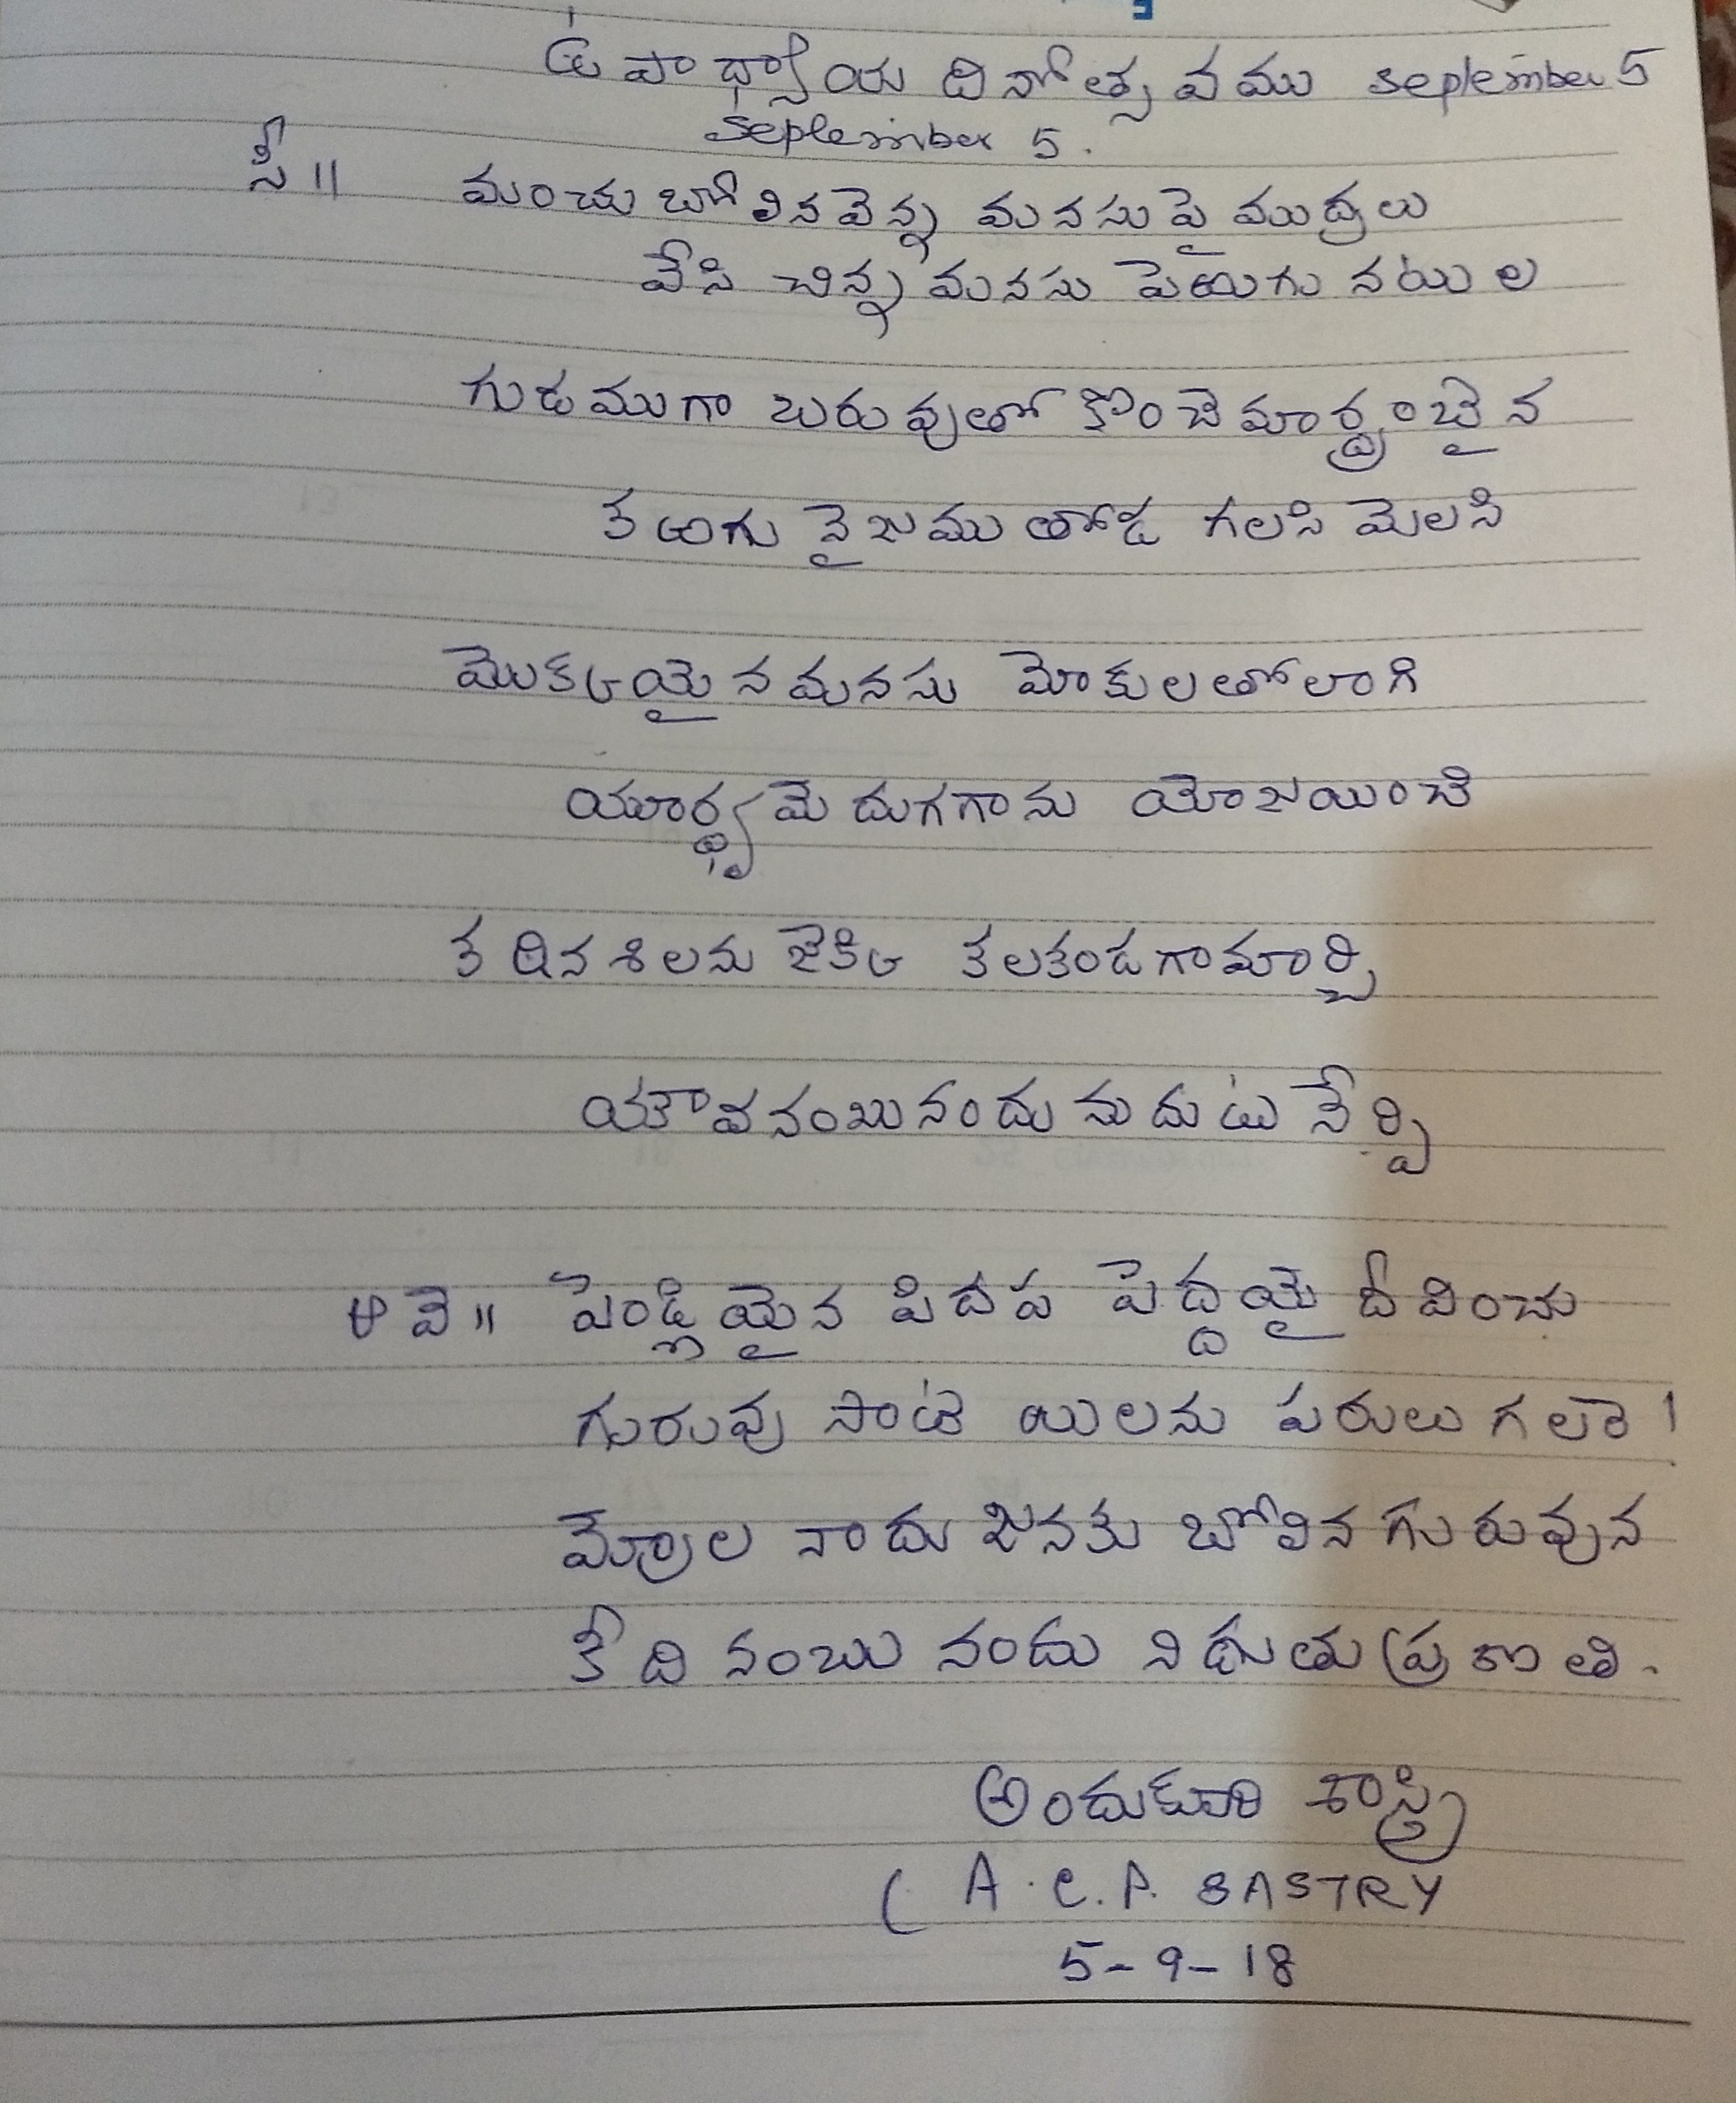 ఉపాధ్యాయ దినోత్సవము september 5
September 5.
సీ॥ మంచు బోలినవెన్న మనసుపై ముద్రలు
వేసి చిన్న మనసు పెఱుగునటుల
గుడముగా బరువుతో కొంచెమార్ద్రంబైన
తఱగు నైజము తోడ గలసి మెలసి
మొక్కయైనమనసు మోకులతోలాగి
యూర్ధ్వమెదుగగాను యోజయించి
కఠినశిలను జెక్కి కలకండగామార్చి
యౌవనంబునందు నుదుటు నేర్పి
ఆవె॥ పెండ్లియైన పిదప పెద్దయై దీవించు
గురువు సాటి యిలను పరులు గలరె!
మ్రోల నాదు జనకు బోలిన గురువున
కీదినంబు నందు నిడుతు ప్రణతి.
అందుకూరి శాస్త్రి
( A.C.P. SASTRY
5-9-18